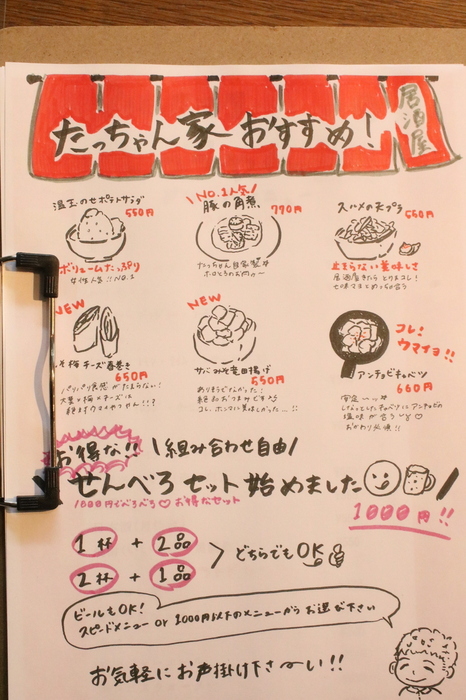 居酒屋
たっちゃん家 おすすめ!
温玉のせポテトサラダ
550円
ボリュームたっぷり
女性人気!! NO.1
\NO.1人気/
豚の角煮
770円
たっちゃん自家製
ホロとろのお肉
スルメの天プラ
650円
止まらない美味しさ
居酒屋きたら とりまコレ!
七味マヨとめっちゃ合う
NEW
そ 梅チーズ春巻き
650円
パリパリ食感がたまらない!
大葉と梅のチーズは
絶対ウマイやつやん!!?
NEW
サバみそ竜田揚げ
550円
ありそうでなかった!
絶品おつまみです
コレ、ホンマに美味しかった…!!
コレ!
ウマイョ!!
アンチョビキャベツ
660円
安定
しなっとしたキャベツにアンチョビの
塩味が合う♡
おかわり必須!!
お得な!! \組み合わせ自由/
せんべろセット始めました
1000円でべろべろ♡お得なセット
1000円!!
1杯 + 2品
2杯 + 1品
> どちらでもOK
ビールもOK!
スピードメニュー or 1000円以下のメニューからお選び下さい
お気軽にお声掛け下さ〜い!!